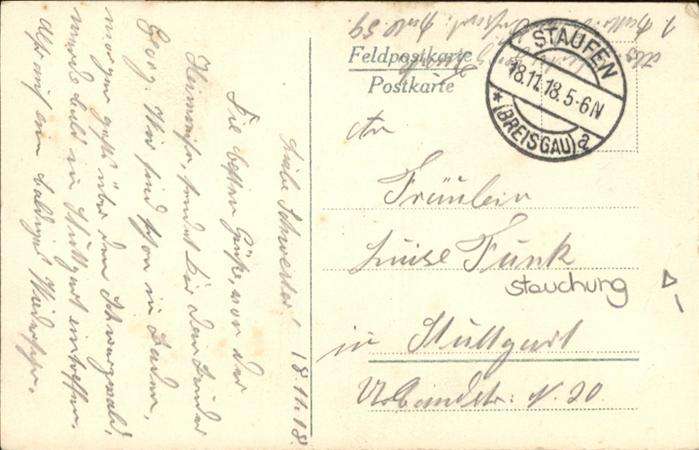 Liebe Schwester! 18.11.18.
Die besten Grüße, von der
Heimreise, sendet Dir Dein Bruder
Georg. Wir sind schon in Baden,
morgen geht's über den Schwarzwald,
werde bald in Stuttgart eintreffen.
Also auf ein baldiges Wiedersehn.
Feldpostkarte
Postkarte
STAUFEN
18.11.18. 5-6N
* (BREISGAU) a
An
Fräulein
Luise Funk
stauchung
in Stuttgart
Urbanstr. N. 20